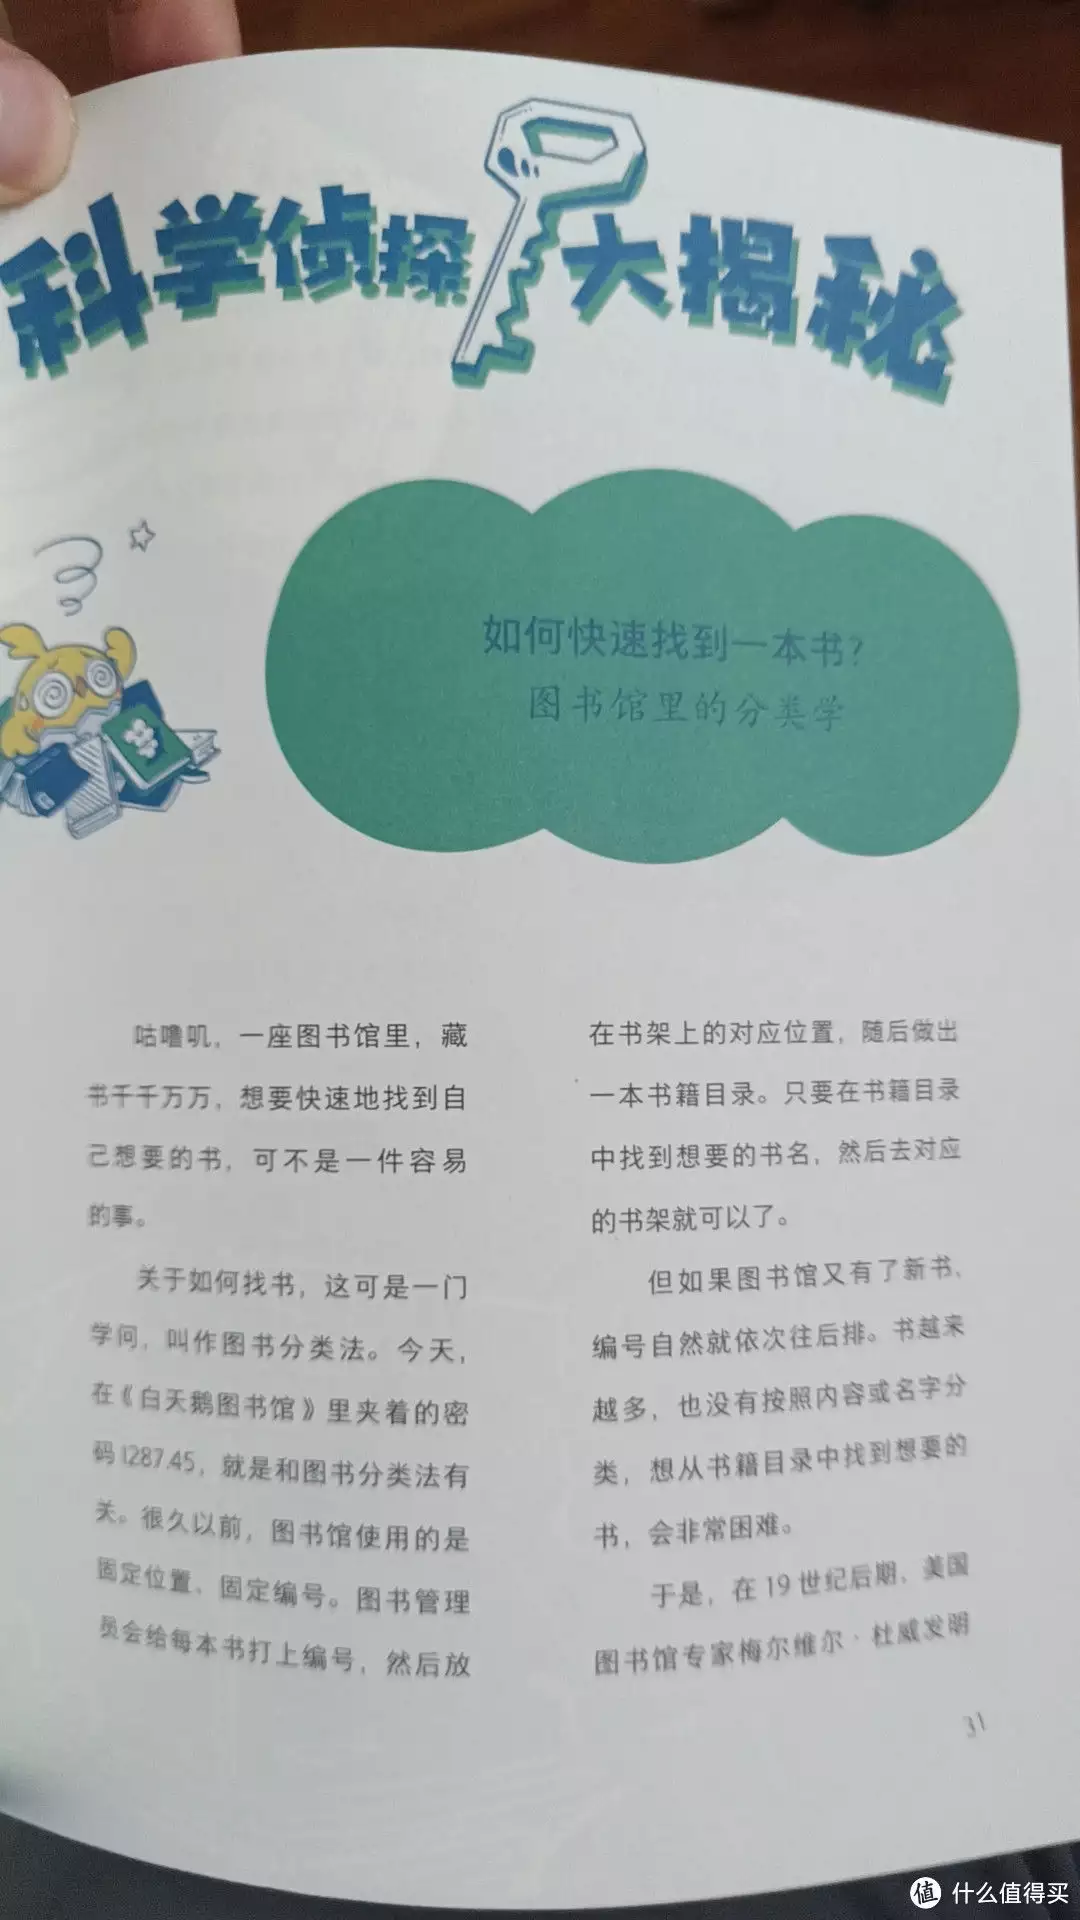 科学侦探大揭秘
如何快速找到一本书？
图书馆里的分类学
咕噜叽，一座图书馆里，藏
书千千万万，想要快速地找到自
己想要的书，可不是一件容易
的事。
关于如何找书，这可是一门
学问，叫作图书分类法。今天，
在《白天鹅图书馆》里夹着的密
码1287.45，就是和图书分类法有
关。很久以前，图书馆使用的是
固定位置、固定编号。图书管理
员会给每本书打上编号，然后放
在书架上的对应位置，随后做出
一本书籍目录。只要在书籍目录
中找到想要的书名，然后去对应
的书架就可以了。
但如果图书馆又有了新书，
编号自然就依次往后排。书越来
越多，也没有按照内容或名字分
类，想从书籍目录中找到想要的
书，会非常困难。
于是，在19世纪后期，美国
图书馆专家梅尔维尔·杜威发明
31
值 什么值得买